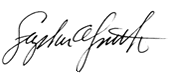 Stephen A Smith